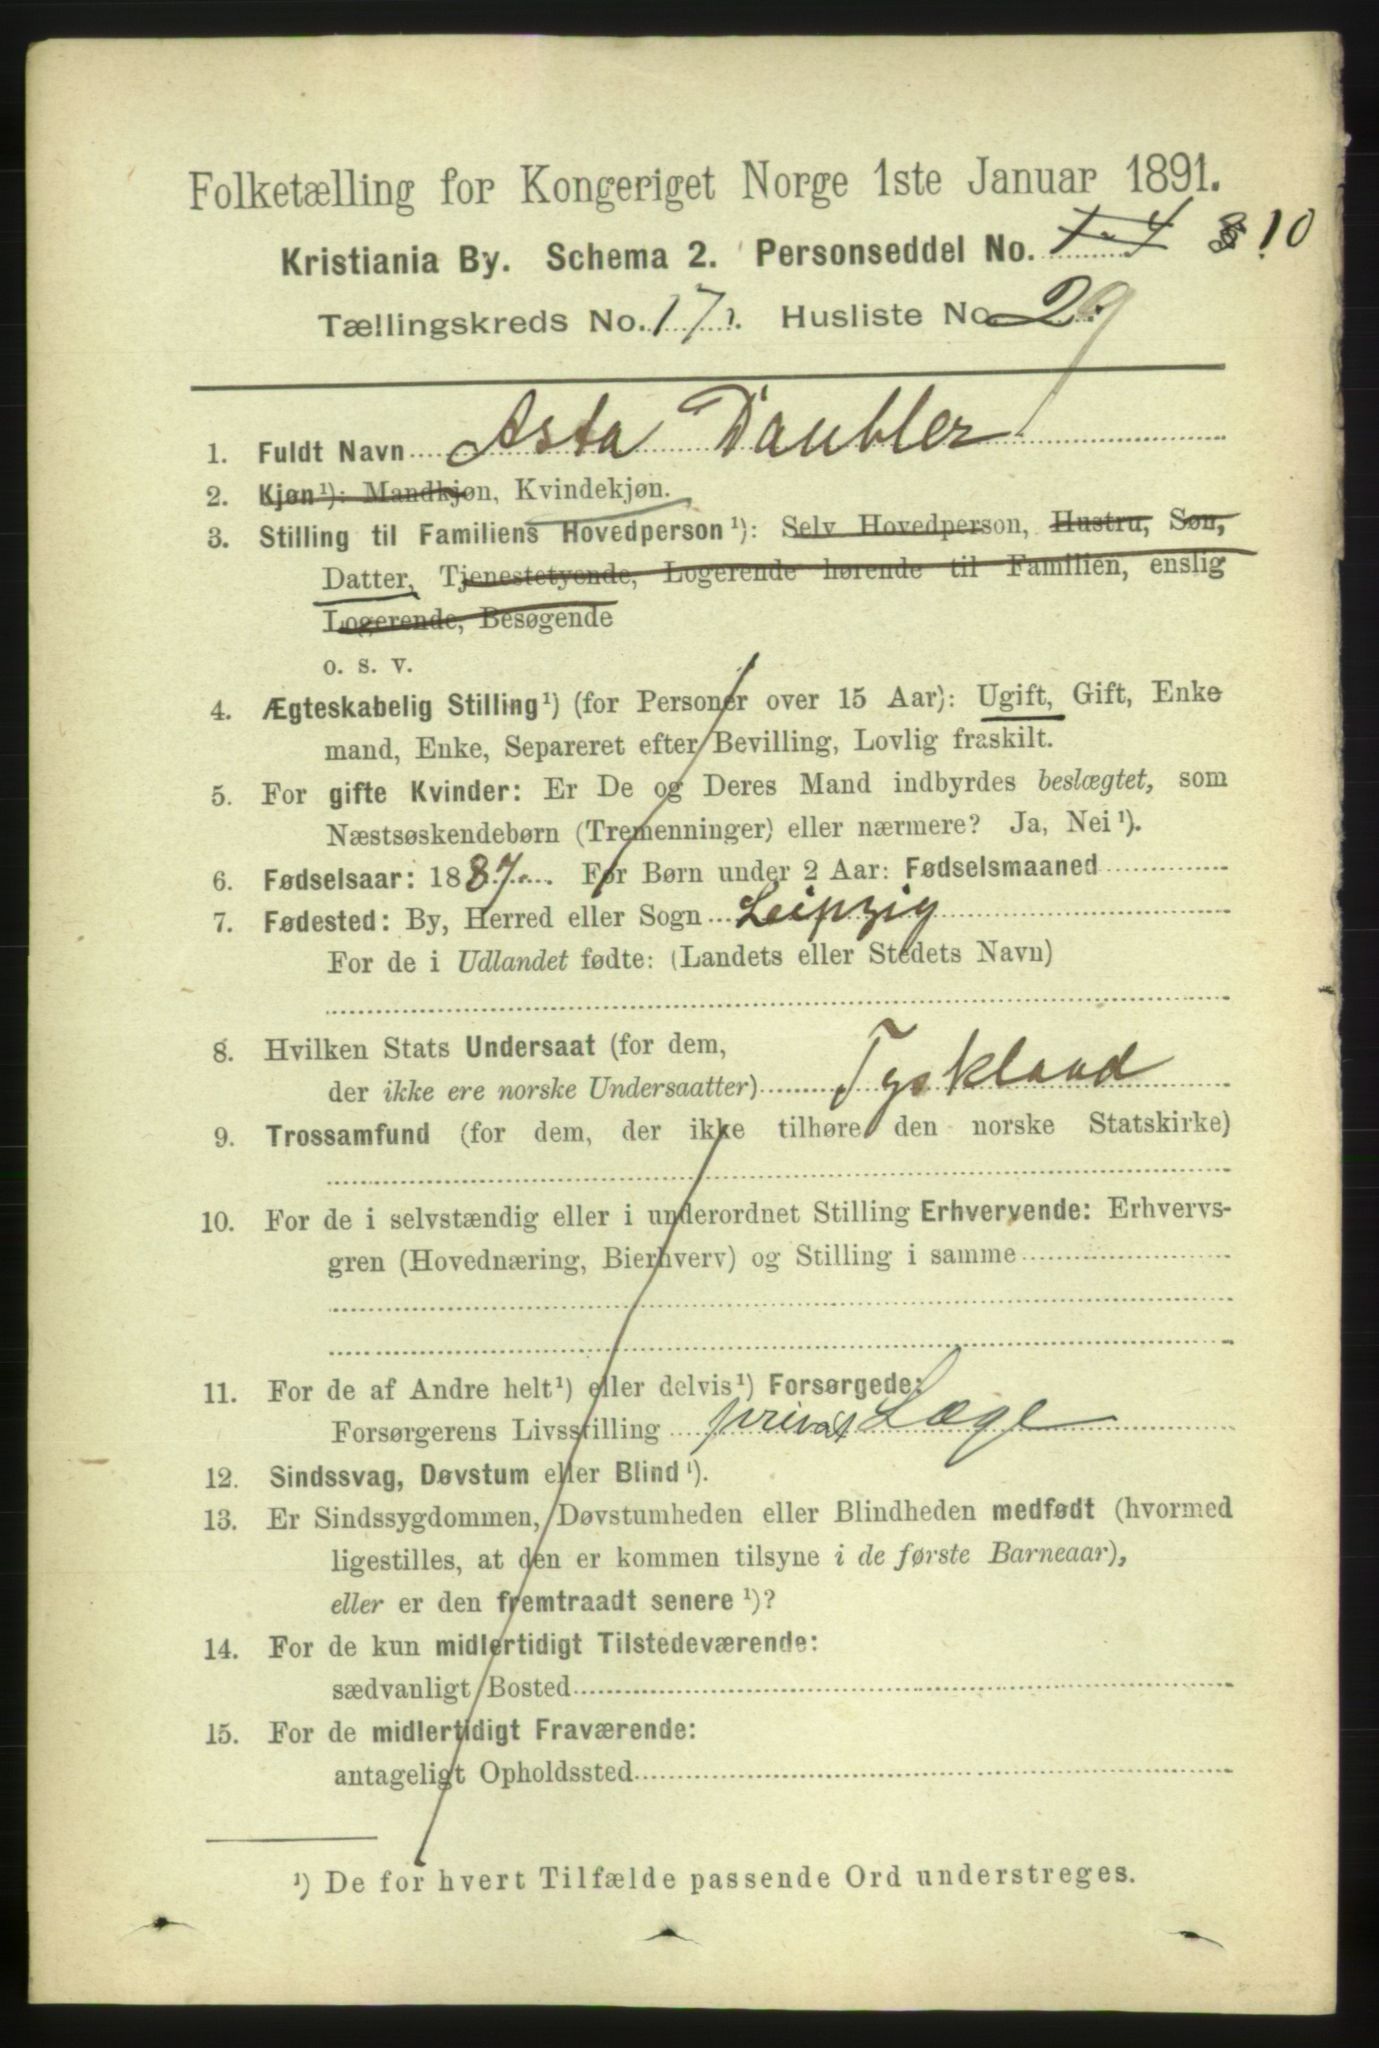 Folketælling for Kongeriget Norge 1ste Januar 1891.
Kristiania By. Schema 2. Personseddel No. 1-4 10
Tællingskreds No. 17. Husliste No. 29
1. Fuldt Navn Asta Daubler
2. Kjøn¹): Mandkjøn, Kvindekjøn.
3. Stilling til Familiens Hovedperson¹): Selv Hovedperson, Hustru, Søn,
Datter, Tjenestetyende, Logerende hørende til Familien, enslig
Logerende, Besøgende
o. s. v.
4. Ægteskabelig Stilling¹) (for Personer over 15 Aar): Ugift, Gift, Enke-
mand, Enke, Separeret efter Bevilling, Lovlig fraskilt.
5. For gifte Kvinder: Er De og Deres Mand indbyrdes beslægtet, som
Næstsøskendebørn (Tremenninger) eller nærmere? Ja, Nei¹).
6. Fødselsaar: 1887. For Børn under 2 Aar: Fødselsmaaned
7. Fødested: By, Herred eller Sogn Leipzig
For de i Udlandet fødte: (Landets eller Stedets Navn)
8. Hvilken Stats Undersaat (for dem,
der ikke ere norske Undersaatter) Tyskland
9. Trossamfund (for dem, der ikke tilhøre den norske Statskirke)
10. For de i selvstændig eller i underordnet Stilling Erhvervende: Erhvervs-
gren (Hovednæring, Bierhverv) og Stilling i samme
11. For de af Andre helt¹) eller delvis¹) Forsørgede:
Forsørgerens Livsstilling privat Læge
12. Sindssvag, Døvstum eller Blind¹).
13. Er Sindssygdommen, Døvstumheden eller Blindheden medfødt (hvormed
ligestilles, at den er kommen tilsyne i de første Barneaar),
eller er den fremtraadt senere¹)?
14. For de kun midlertidigt Tilstedeværende:
sædvanligt Bosted
15. For de midlertidigt Fraværende:
antageligt Opholdssted
¹) De for hvert Tilfælde passende Ord understreges.